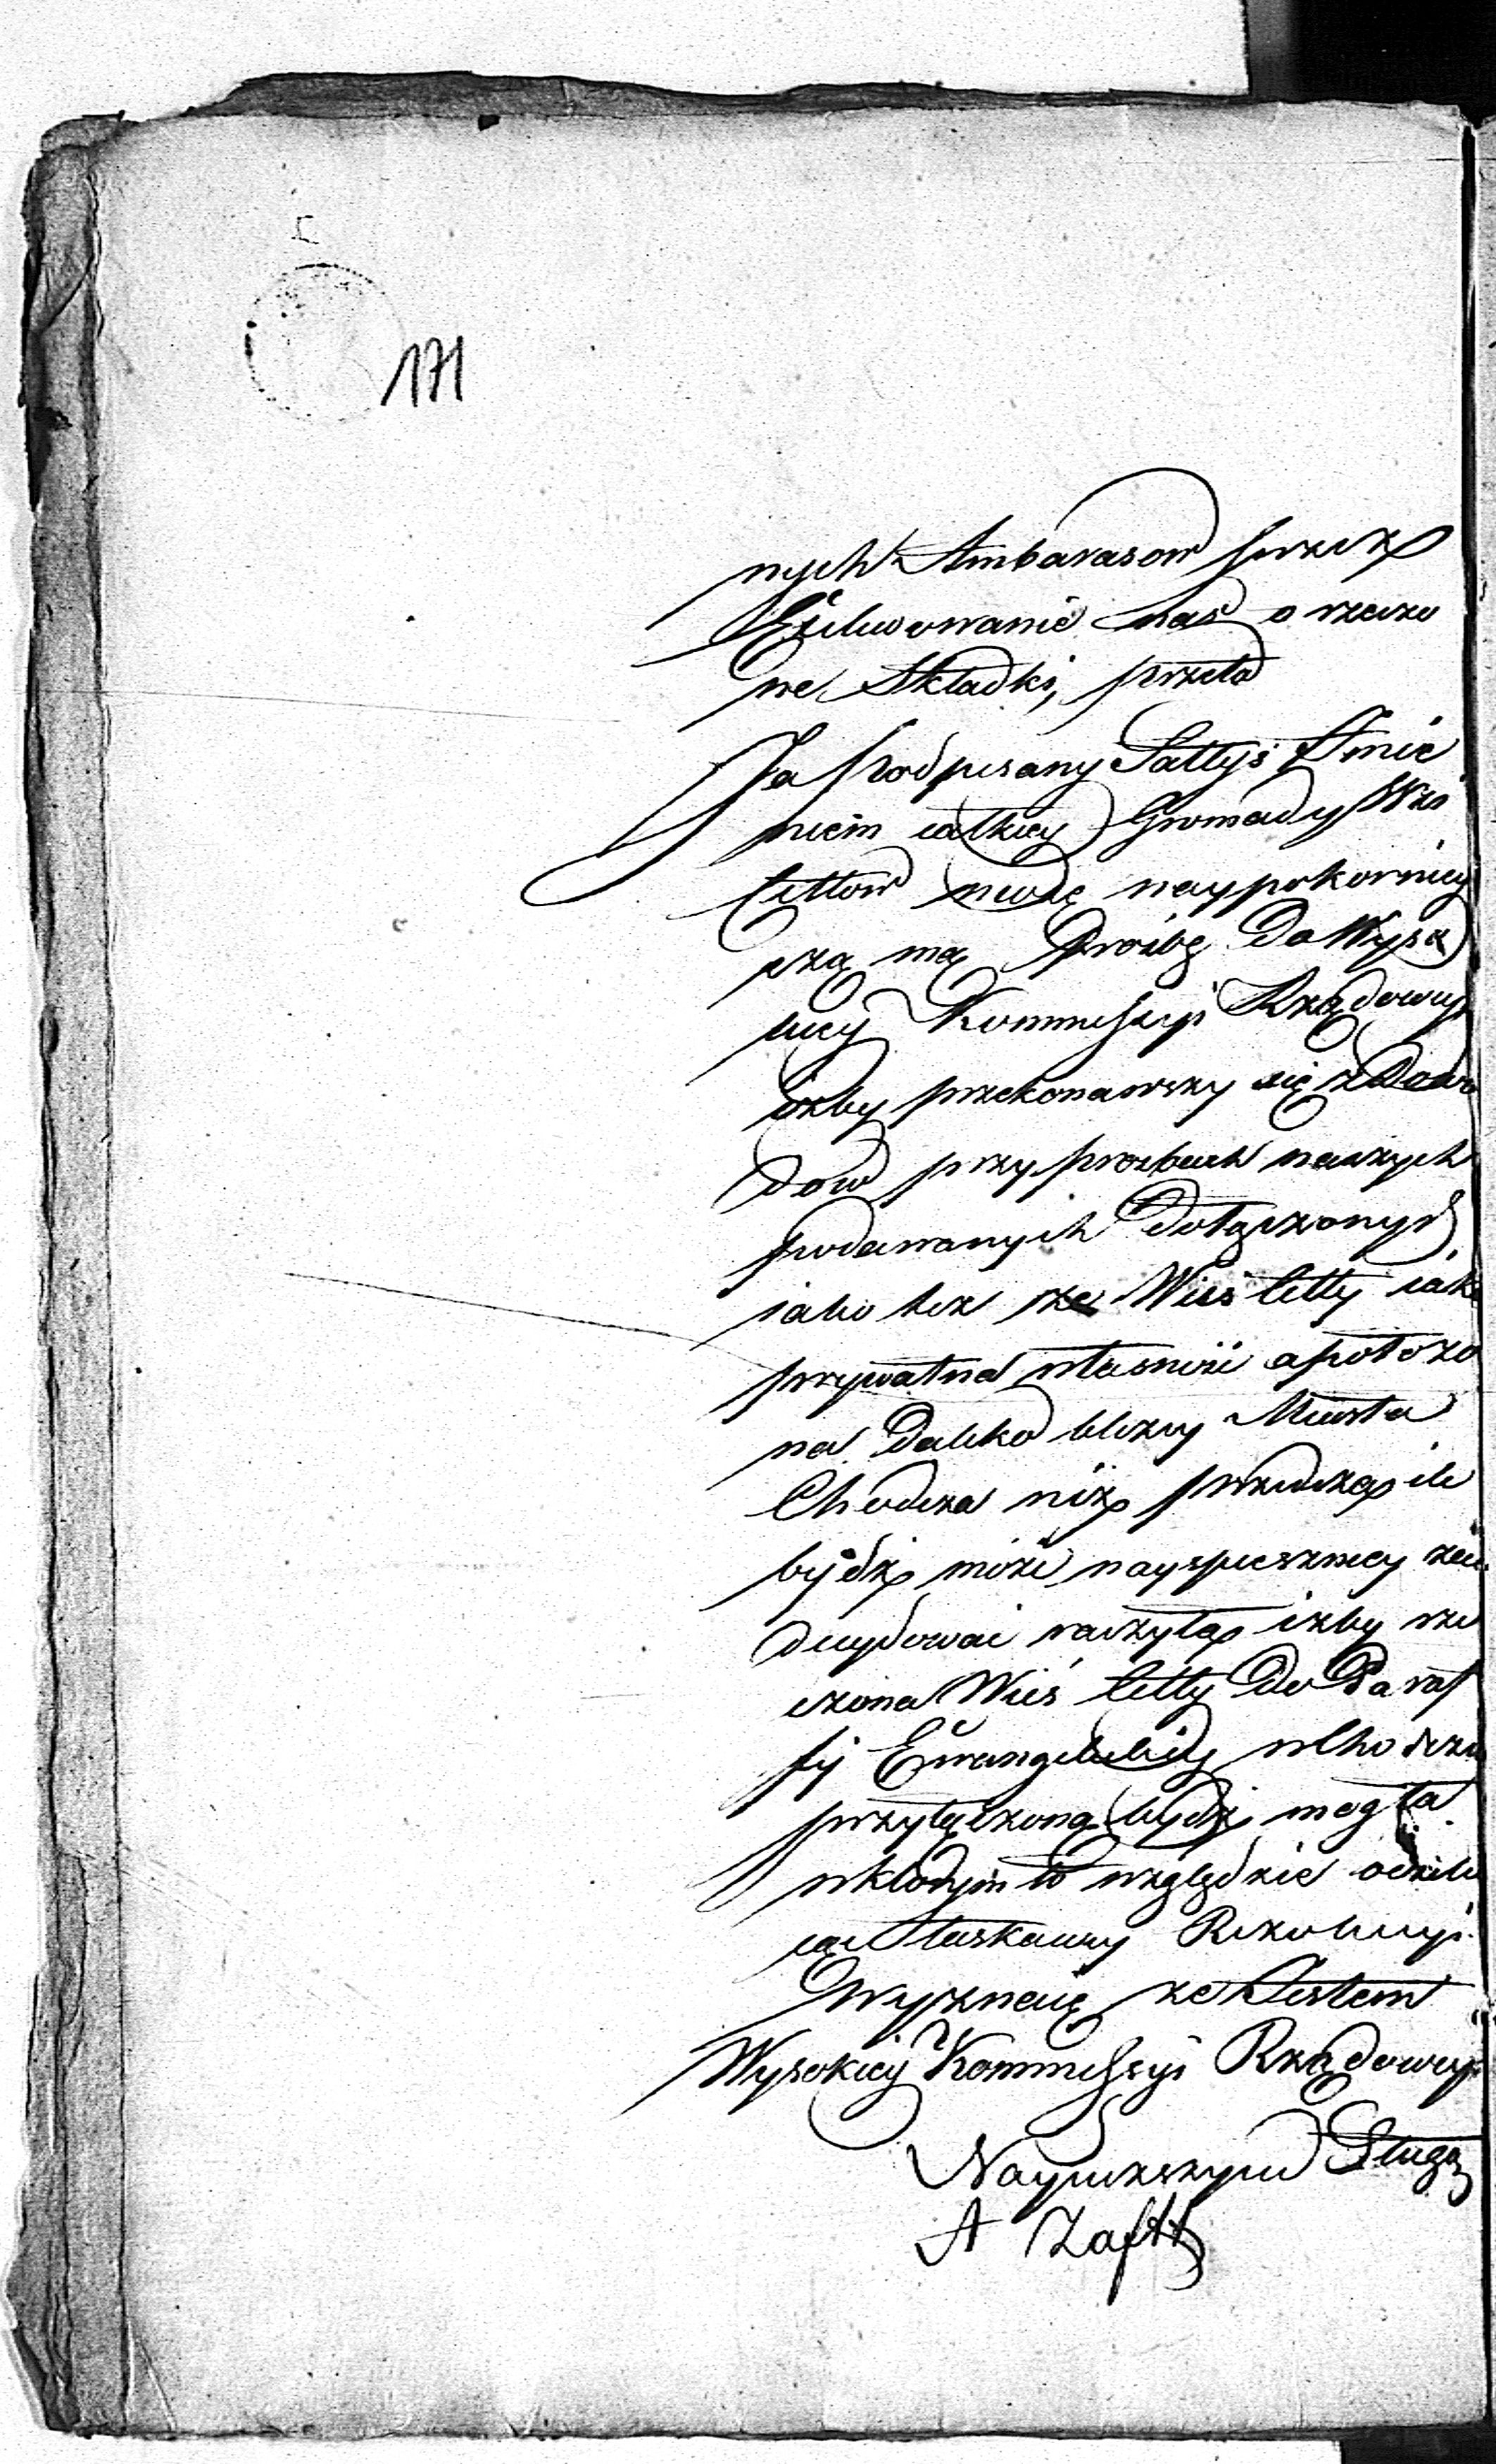 171
nych Ambarasow przez
Exekwowanie nas o rzeczo
ne Składki, przeto
Ja Podpisany Sołtys Imie
niem całkiey Gromady Wsi
Cettow niosę naypokorniey
szą mą Prozbę Do Wyso
kiey Kommissyi Rządowey
izby przekonawszy się z Dowo
dow przy prozbach naszych
podawanych Dołączonych
iako też że Wieś Cetty iako
prywatna własność a położo
na Daleko bliżey Miasta
Chodcza niż Przedecza ile
bydź może nayspieszniey zade
cydować raczyła, izby rze
czona Wieś Cetty Do Paraf
fij Ewangelickiey w Chodczu
przyłączoną bydź mogła
w którym to względzie oczeku
iąc łaskawey Rezolucyi
wyznaię że Jestem
Wysokiey Kommissyi Rządowey
Nayniższym Sługą
A